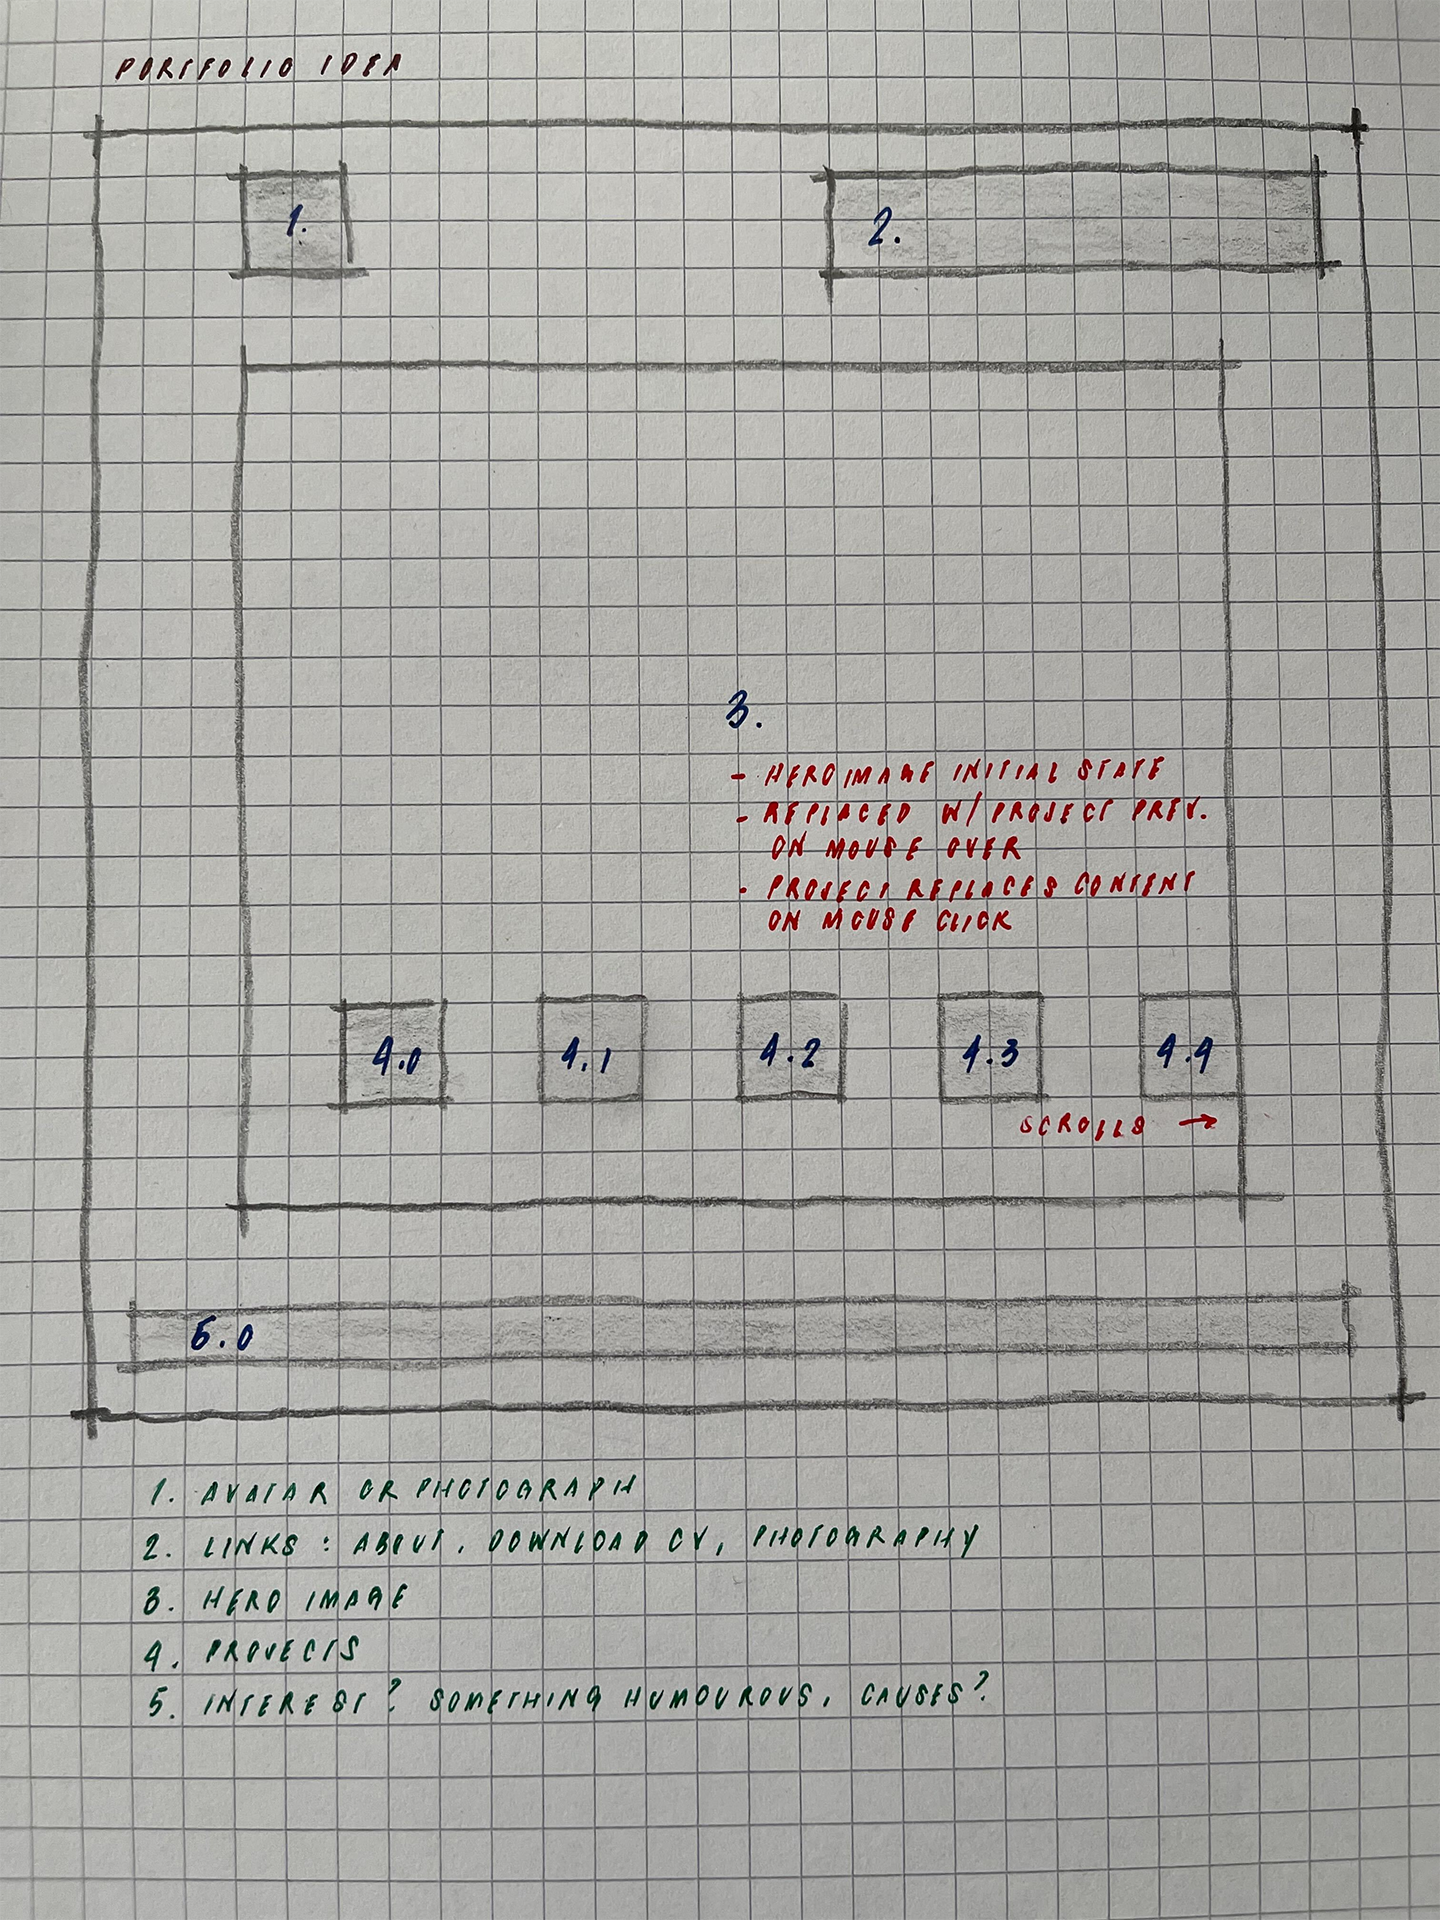 PORTFOLIO IDEA
1.
2.
3.
- HERO IMAGE INITIAL STATE
- REPLACED W/ PROJECT PREV.
ON MOUSE OVER
- PROJECT REPLACES CONTENT
ON MOUSE CLICK
4.0
4.1
4.2
4.3
4.4
SCROLLS →
5.0
1. AVATAR OR PHOTOGRAPH
2. LINKS : ABOUT, DOWNLOAD CV, PHOTOGRAPHY
3. HERO IMAGE
4. PROJECTS
5. INTEREST? SOMETHING HUMOUROUS, CAUSES?